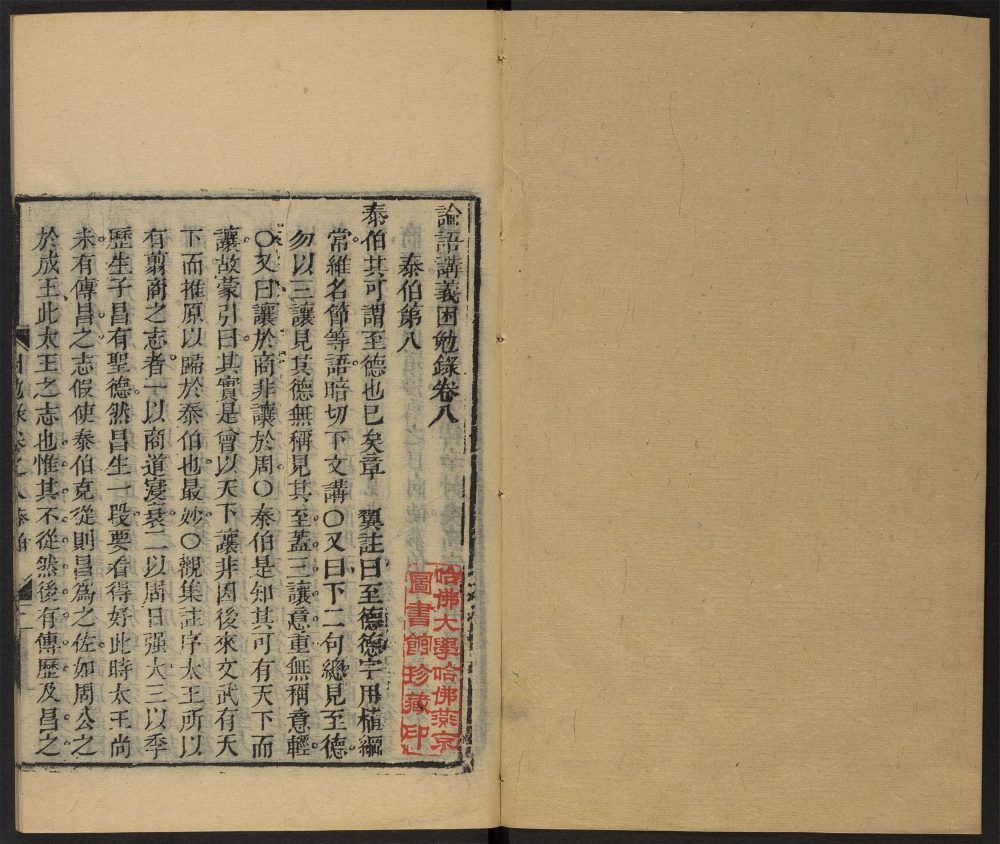 論語講義困勉錄卷八
泰伯第八
泰伯其可謂至德也已矣章 翼註曰至德德字用植綱
常維名節等語暗切下文講〇又曰下二句總見至德
勿以三讓見其德無稱見其至蓋三讓意重無稱意輕
〇又曰讓於商非讓於周〇泰伯是知其可有天下而
讓故蒙引曰其實是會以天下讓非因後來文武有天
下而推原以歸於泰伯也最妙〇觀集註序太王所以
有翦商之志者一以商道寖衰二以周日强大三以季
歷生子昌有聖德然昌生一段要看得好此時太王尚
未有傳昌之志假使泰伯克從則昌爲之佐如周公之
於成王此太王之志也惟其不從然後有傳歷及昌之
困勉錄卷之八泰伯
一
哈佛大學哈佛燕京
圖書館珍藏印